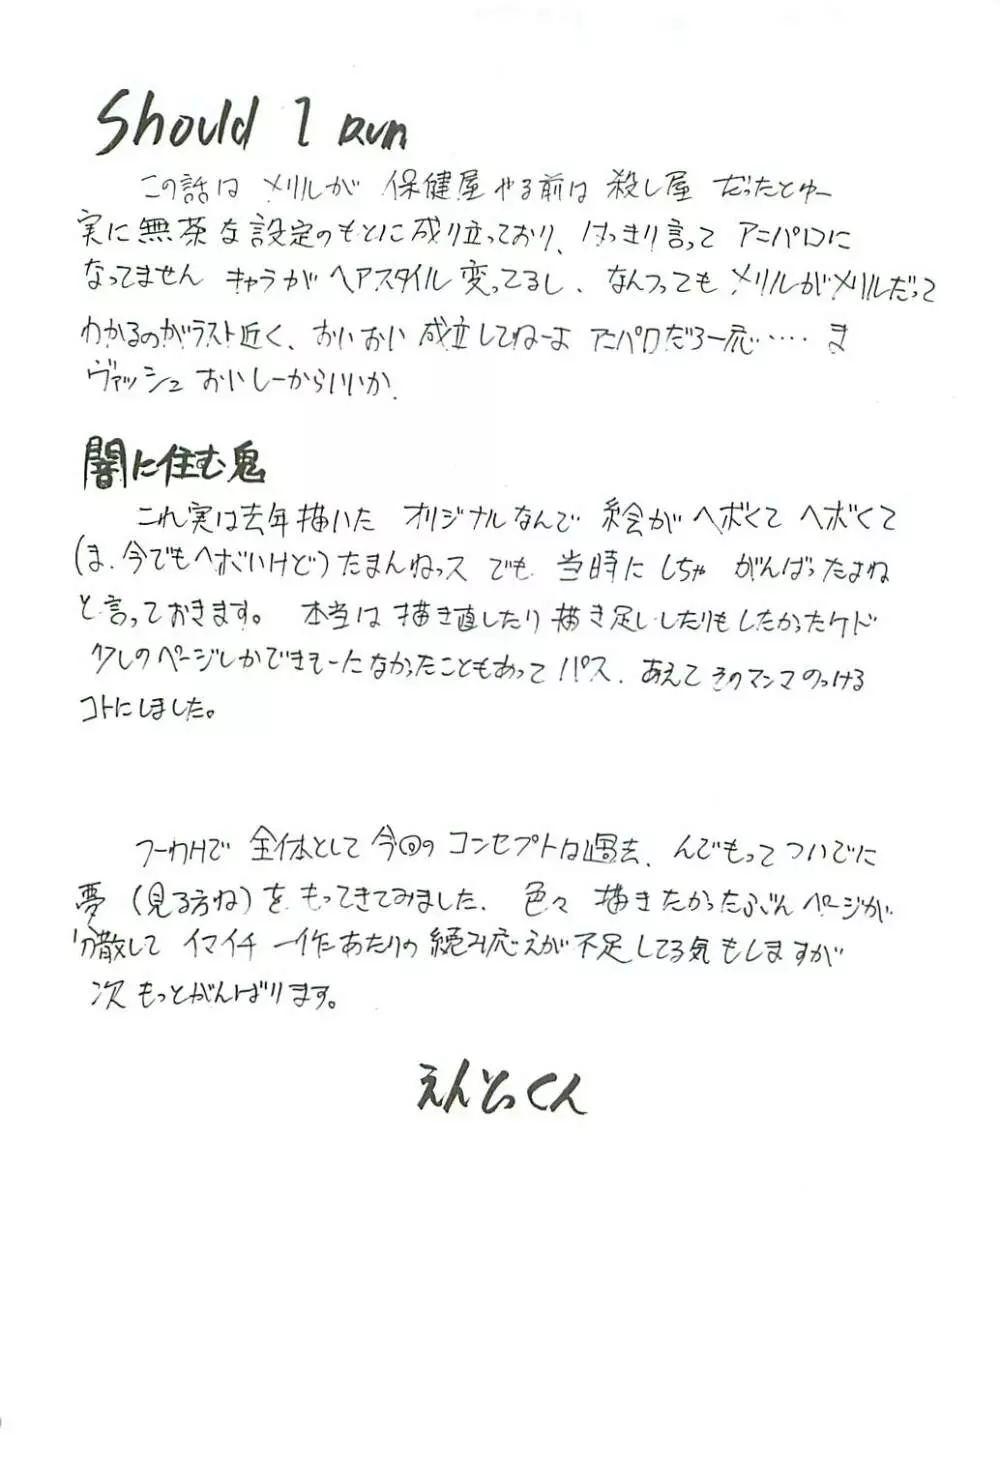 Should I Run
この話は メリルが 保健屋やる前は 殺し屋 だったとゆー
実に無茶な設定のもとに成り立っており、はっきり言って アニパロに
なってません キャラがヘアスタイル変ってるし、なんつってもメリルがメリルだって
わかるのがラスト近く、おいおい 成立してねーよ アニパロだろ一応‥‥‥ ま
ヴァッシュ おいしーからいいか.
闇に住む鬼
これ実は去年描いた オリジナルなんで 絵がヘボくて ヘボくて
(ま.今でもヘボいけど)たまんねっス でも 当時にしちゃ がんばったよね
と言っておきます。 本当は描き直したり描き足ししたりもしたかったケド
少しのページしかできそーになかったこともあってパス.あえてそのマンマのっける
コトにしました。
つーわけで 全体として今回のコンセプトは過去、んでもってついでに
夢(見る方ね)をもってきてみました. 色々 描きたかったぶんページが
分散して イマイチ 一作あたりの読み応えが不足してる気もしますが
次もっとがんばります。
えんとっくん